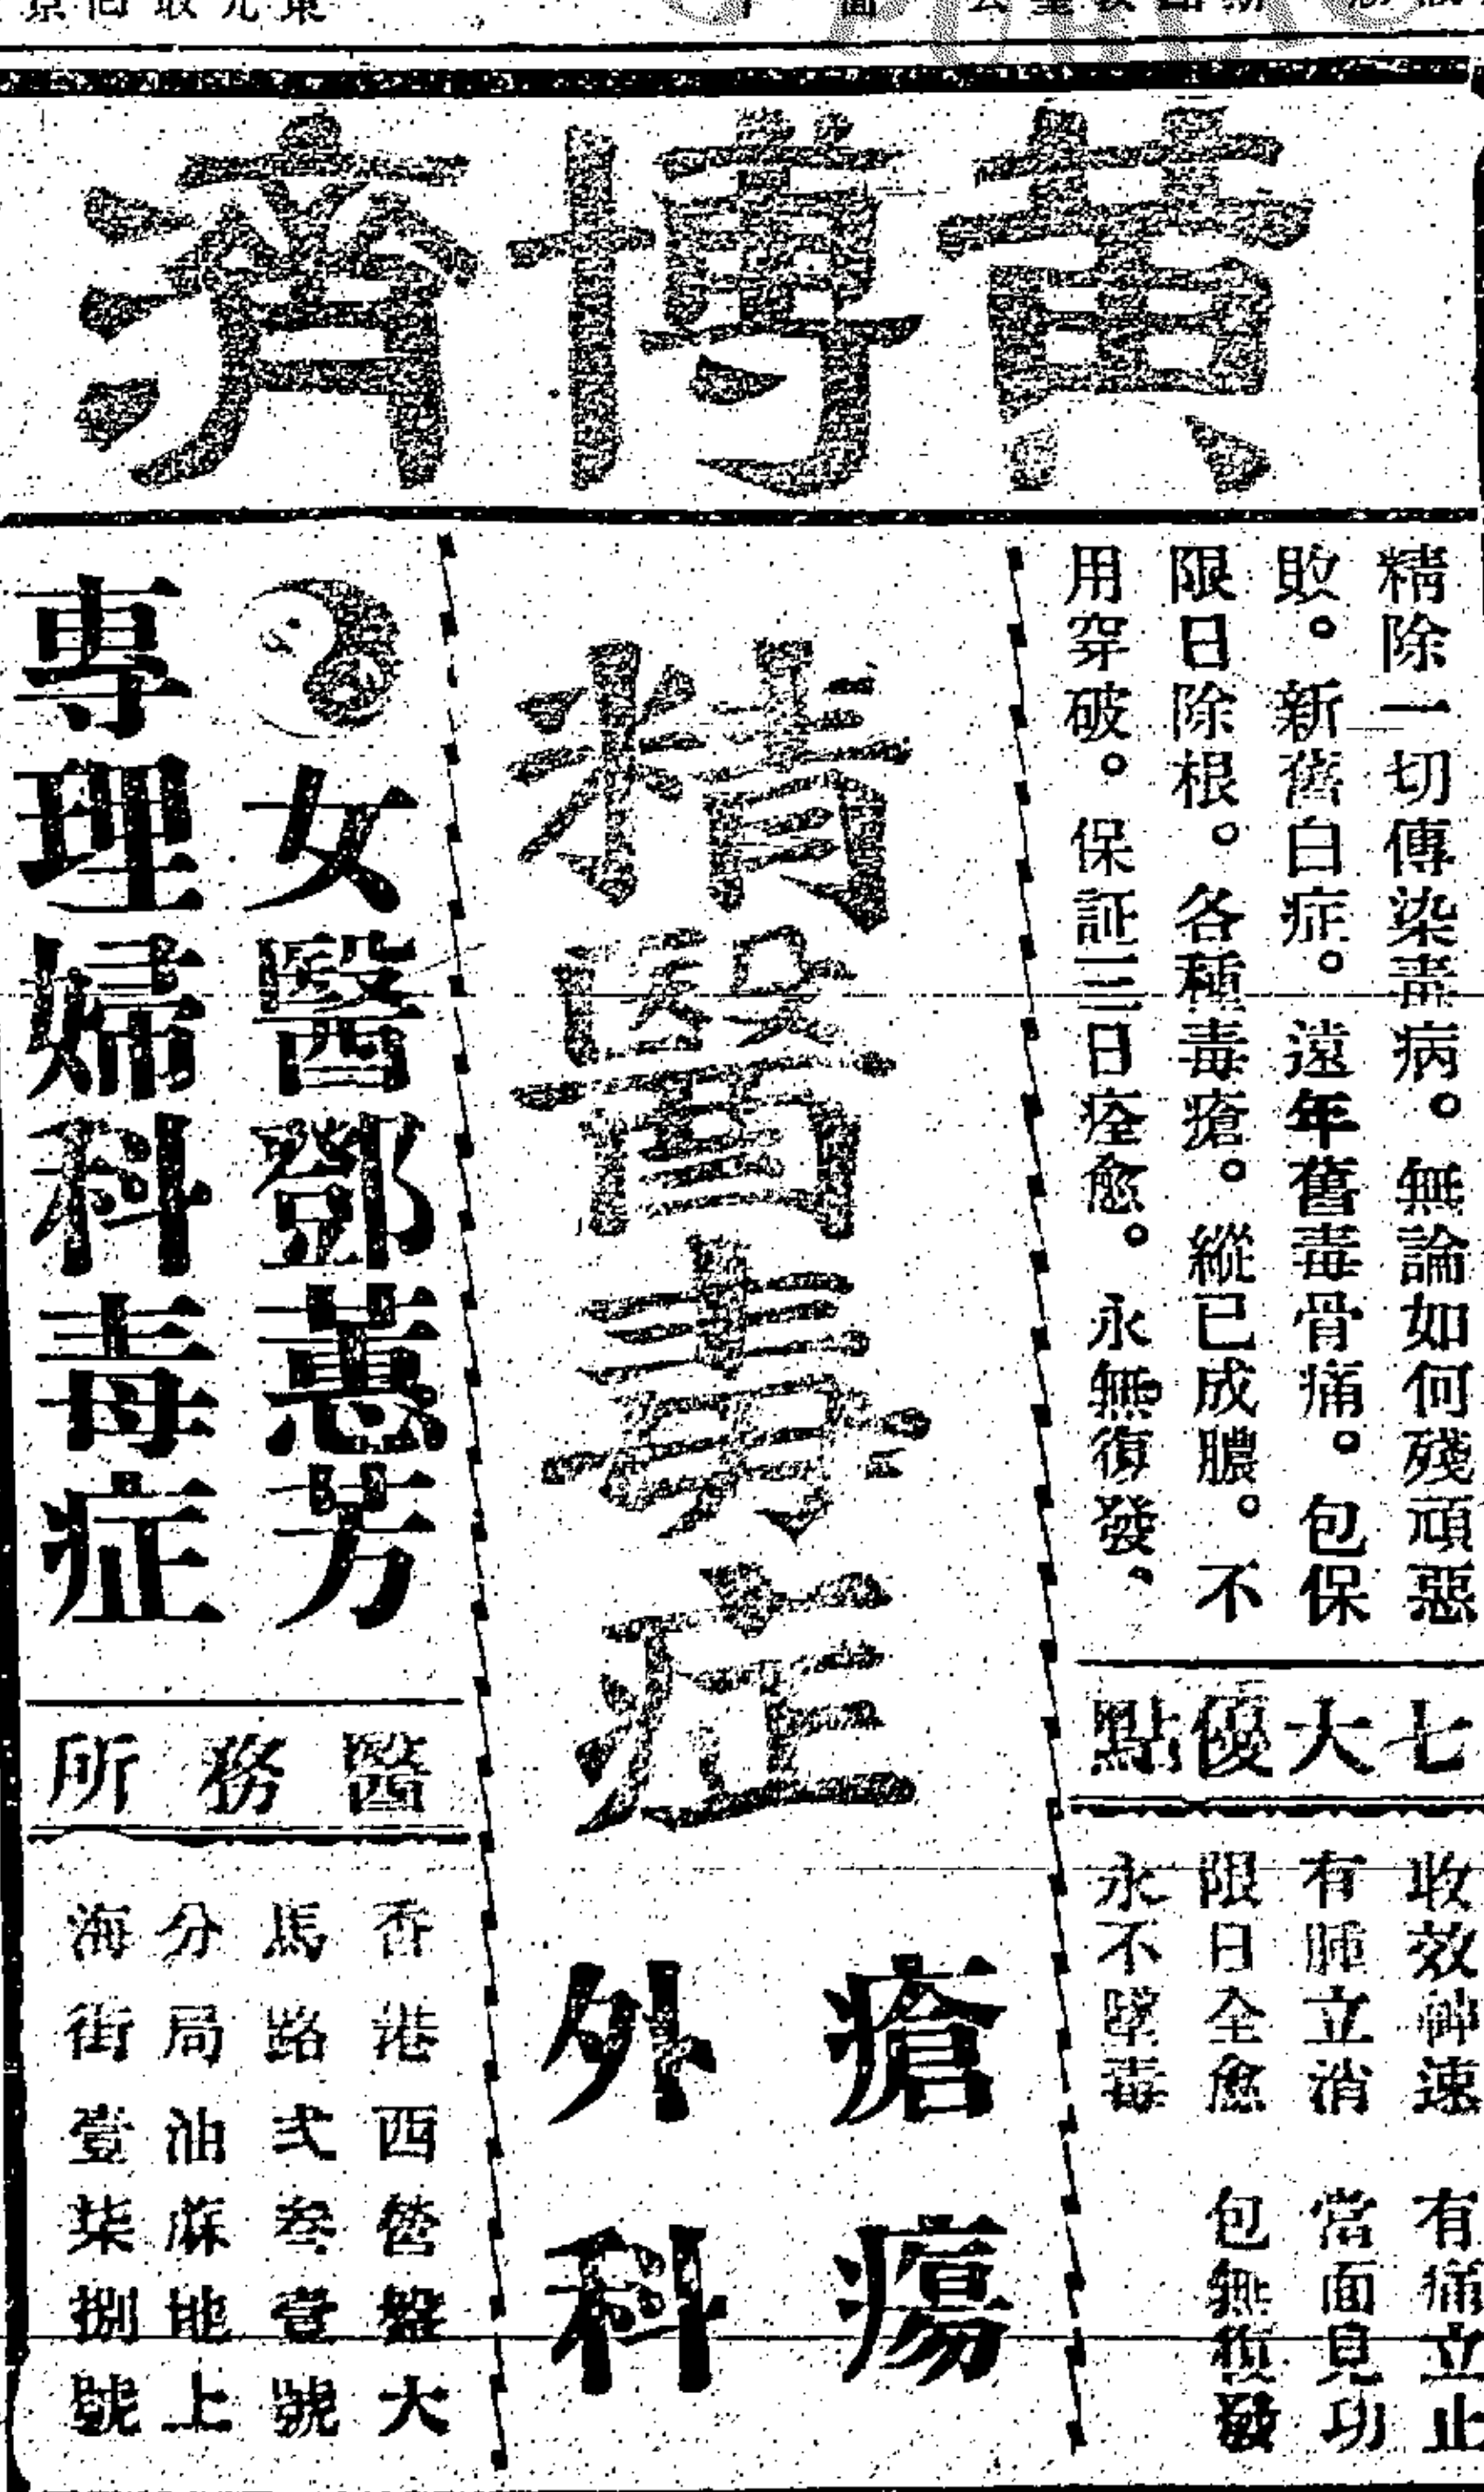 黃博濟
精除一切傳染毒病。無論如何殘頑惡
敗。新舊白症。遠年舊毒骨痛。包保
限日除根。各種毒瘡。縱已成膿。不
用穿破。保証三日痊愈。永無復發、
七大優點
收效神速 有痛立止
有腫立消 當面見功
限日全愈 包無復發
永不墜毒
精醫毒症
瘡瘍
外科
女醫鄧惠芳
專理婦科毒症
醫務所
香港西營盤大
馬路弍叁壹號
分局油蔴地上
海街壹柒捌號